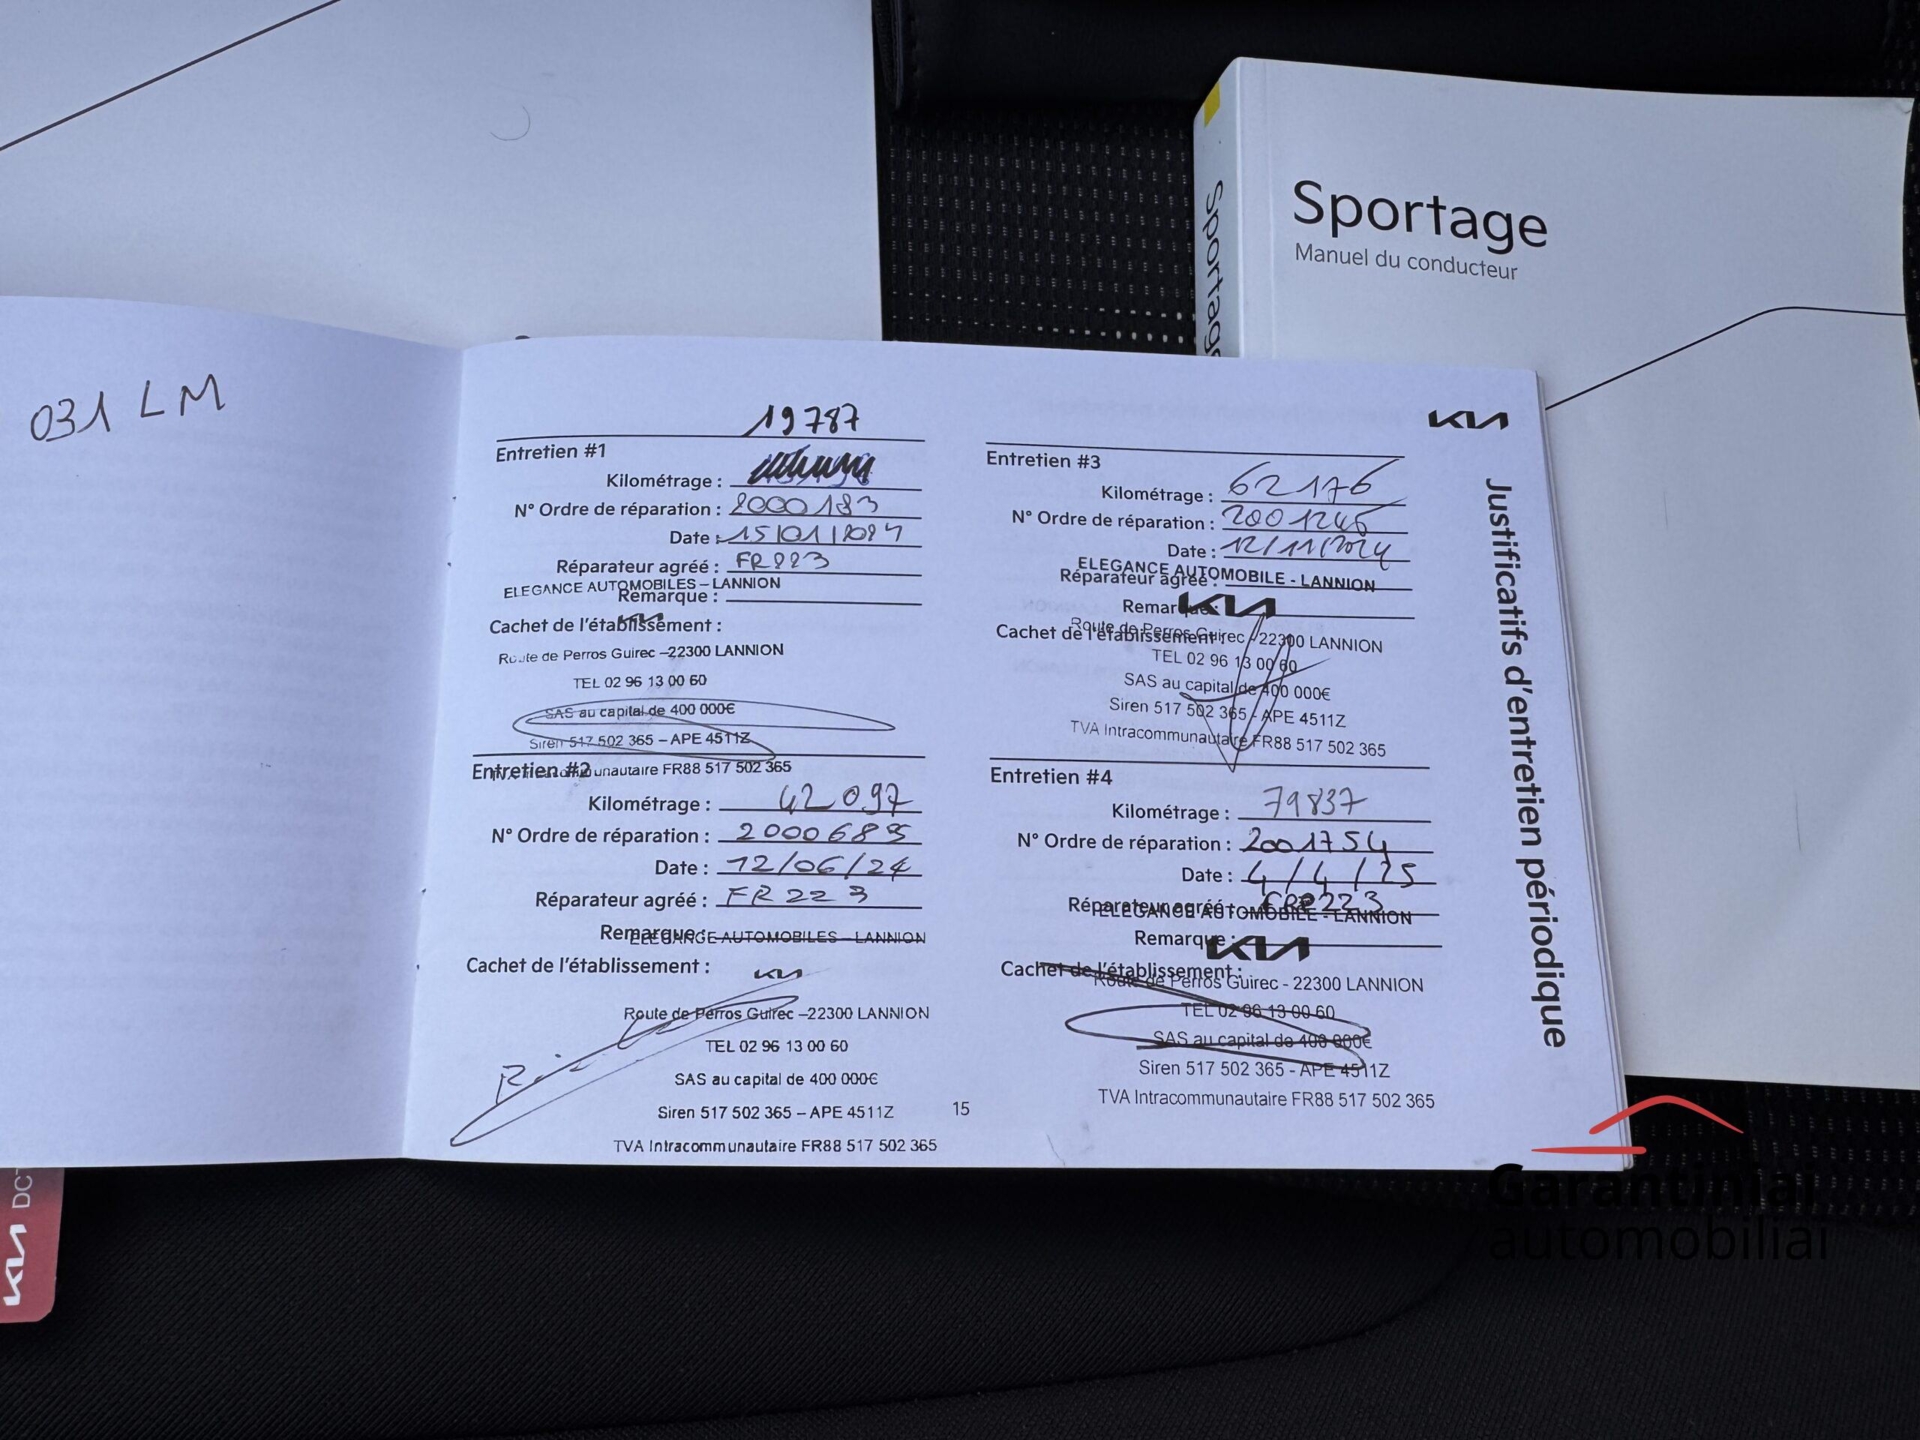 Sportage
Manuel du conducteur
Sportage
031 LM
KIA
Justificatifs d'entretien périodique
19787
Entretien #1
Kilométrage :
N° Ordre de réparation : 2000183
Date : 15/01/2024
Réparateur agréé : FR223
ELEGANCE AUTOMOBILES – LANNION
Remarque :
KIA
Cachet de l'établissement :
Route de Perros Guirec –22300 LANNION
TEL 02 96 13 00 60
SAS au capital de 400 000€
Siren 517 502 365 – APE 4511Z
TVA Intracommunautaire FR88 517 502 365
Entretien #2
Kilométrage : 42 097
N° Ordre de réparation : 2000689
Date : 12/06/24
Réparateur agréé : FR223
Remarque :
ELEGANCE AUTOMOBILES – LANNION
Cachet de l'établissement :
KIA
Route de Perros Guirec –22300 LANNION
TEL 02 96 13 00 60
SAS au capital de 400 000€
Siren 517 502 365 – APE 4511Z
TVA Intracommunautaire FR88 517 502 365
Entretien #3
Kilométrage : 62176
N° Ordre de réparation : 2001246
Date : 12/11/2024
ELEGANCE AUTOMOBILE - LANNION
Réparateur agréé :
Remarque :
KIA
Cachet de l'établissement :
Route de Perros Guirec - 22300 LANNION
TEL 02 96 13 00 60
SAS au capital de 400 000€
Siren 517 502 365 - APE 4511Z
TVA Intracommunautaire FR88 517 502 365
Entretien #4
Kilométrage : 79837
N° Ordre de réparation : 2001754
Date : 4/4/25
Réparateur agréé : FR223
ELEGANCE AUTOMOBILE - LANNION
Remarque :
KIA
Cachet de l'établissement :
Route de Perros Guirec - 22300 LANNION
TEL 02 96 13 00 60
SAS au capital de 400 000€
Siren 517 502 365 - APE 4511Z
TVA Intracommunautaire FR88 517 502 365
15
KIA DCT
Garantiniai
automobiliai